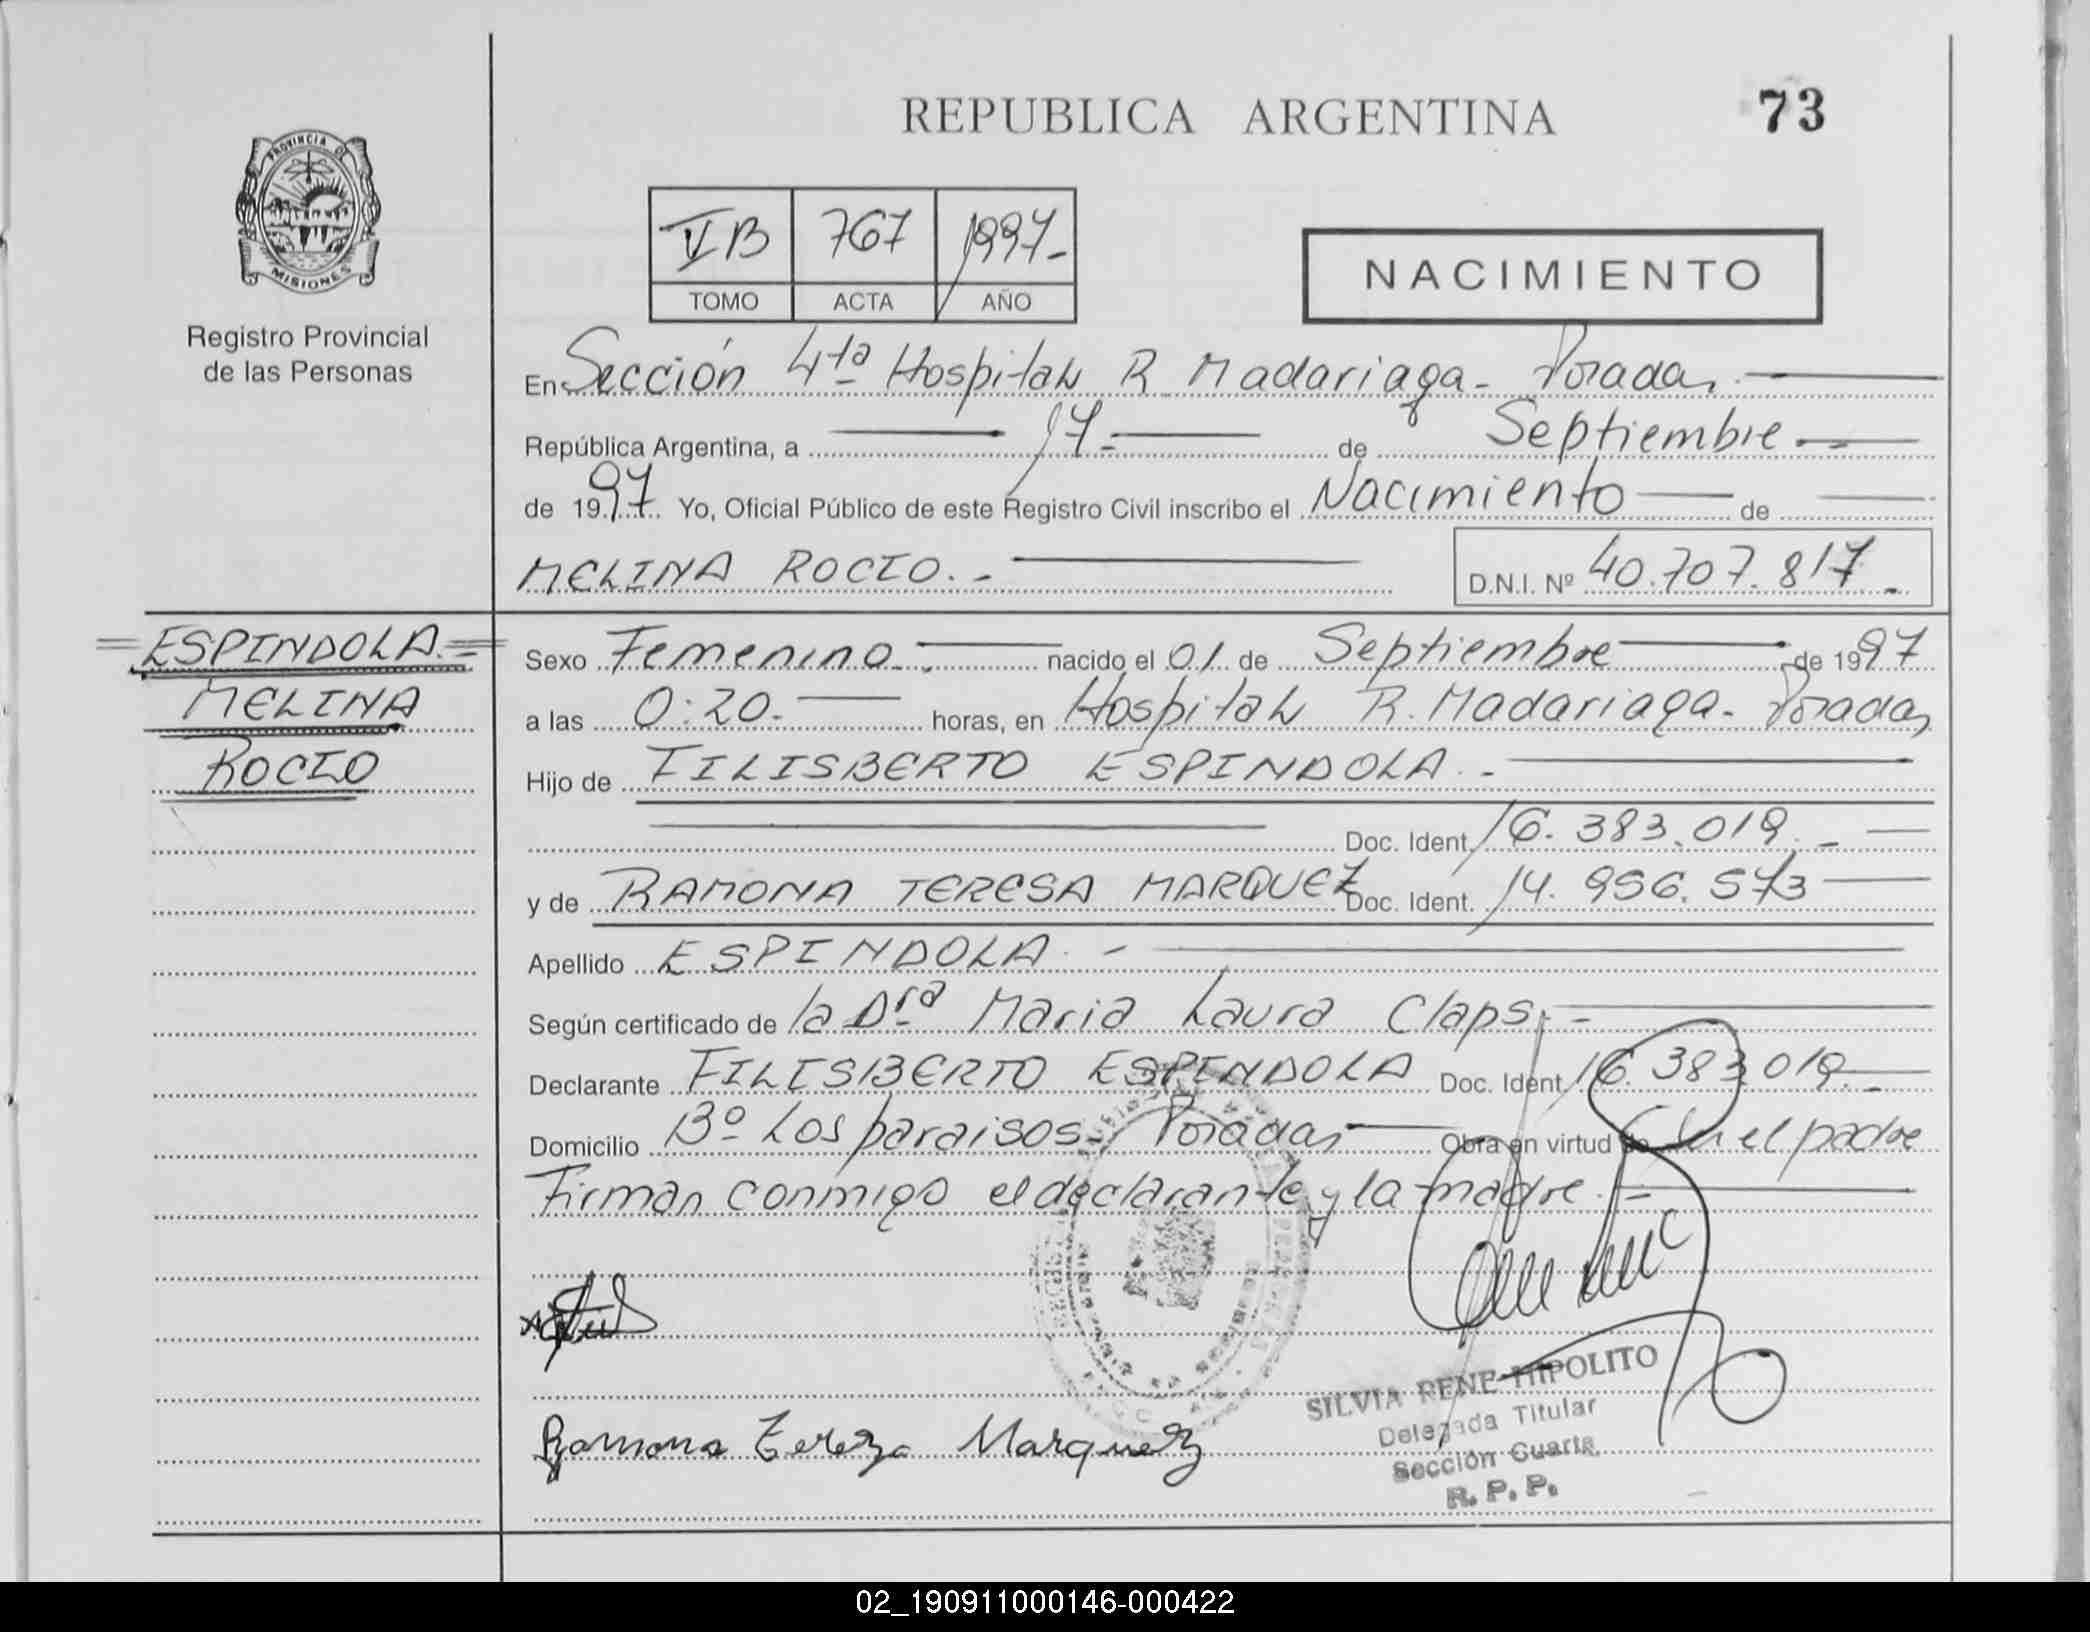 REPUBLICA ARGENTINA
73
PROVINCIA DE
MISIONES
Registro Provincial
de las Personas
VB 767 1997-
TOMO ACTA AÑO
NACIMIENTO
En Sección 4ta Hospital R Madariaga - Posadas
República Argentina, a 17 - de Septiembre
de 1997 Yo, Oficial Público de este Registro Civil inscribo el Nacimiento de
MELINA ROCIO. -
D.N.I. Nº 40.707.817 -
ESPINDOLA
MELINA
ROCIO
Sexo Femenino nacido el 01 de Septiembre de 1997
a las 0:20. horas, en Hospital R. Madariaga - Posadas
Hijo de FILISBERTO ESPINDOLA. -
Doc. Ident. 16.383.019. -
y de RAMONA TERESA MARQUEZ Doc. Ident. 14.956.573
Apellido ESPINDOLA. -
Según certificado de la Dra Maria Laura Claps. -
Declarante FILISBERTO ESPINDOLA Doc. Ident 16.383.019. -
Domicilio Bº Los paraisos. Posadas Obra en virtud de el padre
Firman conmigo el declarante y la madre. -
Ramona Tereza Marquez
SILVIA RENE HIPOLITO
Delegada Titular
Sección Cuarta
R. P. P.
02_190911000146-000422